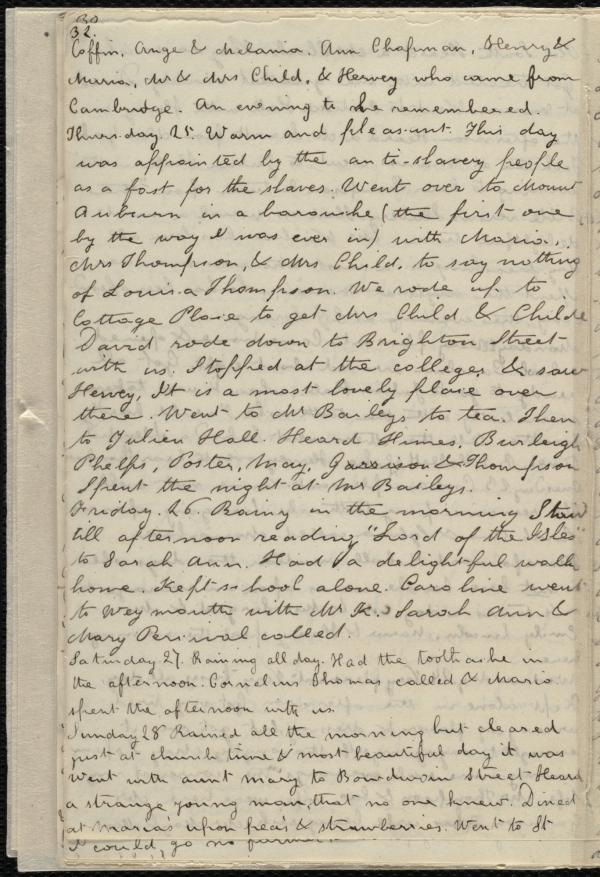 32.
Coffin, Ange & Melania. Ann Chapman, Henry &
Maria, Mr & Mrs Child, & Hervey who came from
Cambridge. An evening to be remembered.
Thursday 25. Warm and pleasant. This day
was appointed by the anti-slavery people
as a fast for the slaves. Went over to Mount
Auburn in a barouche (the first one
by the way I was ever in) with Maria,
Mrs Thompson, & Mrs Child, to say nothing
of Louisa Thompson. We rode up to
Cottage Place to get Mrs Child & Childe
David rode down to Brighton Street
with us. Stopped at the colleges & saw
Hervey, It is a most lovely place over
there. Went to Mr Baileys to tea. Then
to Julien Hall. Heard Himes, Burleigh
Phelps, Foster, May, Garrison & Thompson
Spent the night at Mr Baileys.
Friday. 26. Rainy in the morning Staid
till afternoon reading "Lord of the Isles"
to Sarah Ann. Had a delightful walk
home. Kept school alone. Caroline went
to Weymouth with Mr K. Sarah Ann &
Mary Percival called.
Saturday 27. Raining all day. Had the toothache in
the afternoon. Cornelius Thomas called & Maria
spent the afternoon with us
Sunday 28 Rained all the morning but cleared
just at church time & most beautiful day it was
Went with aunt Mary to Bowdwoin Street Heard
a strange young man, that no one knew. Dined
at Maria's upon peas & strawberries. Went to St
I could go no further